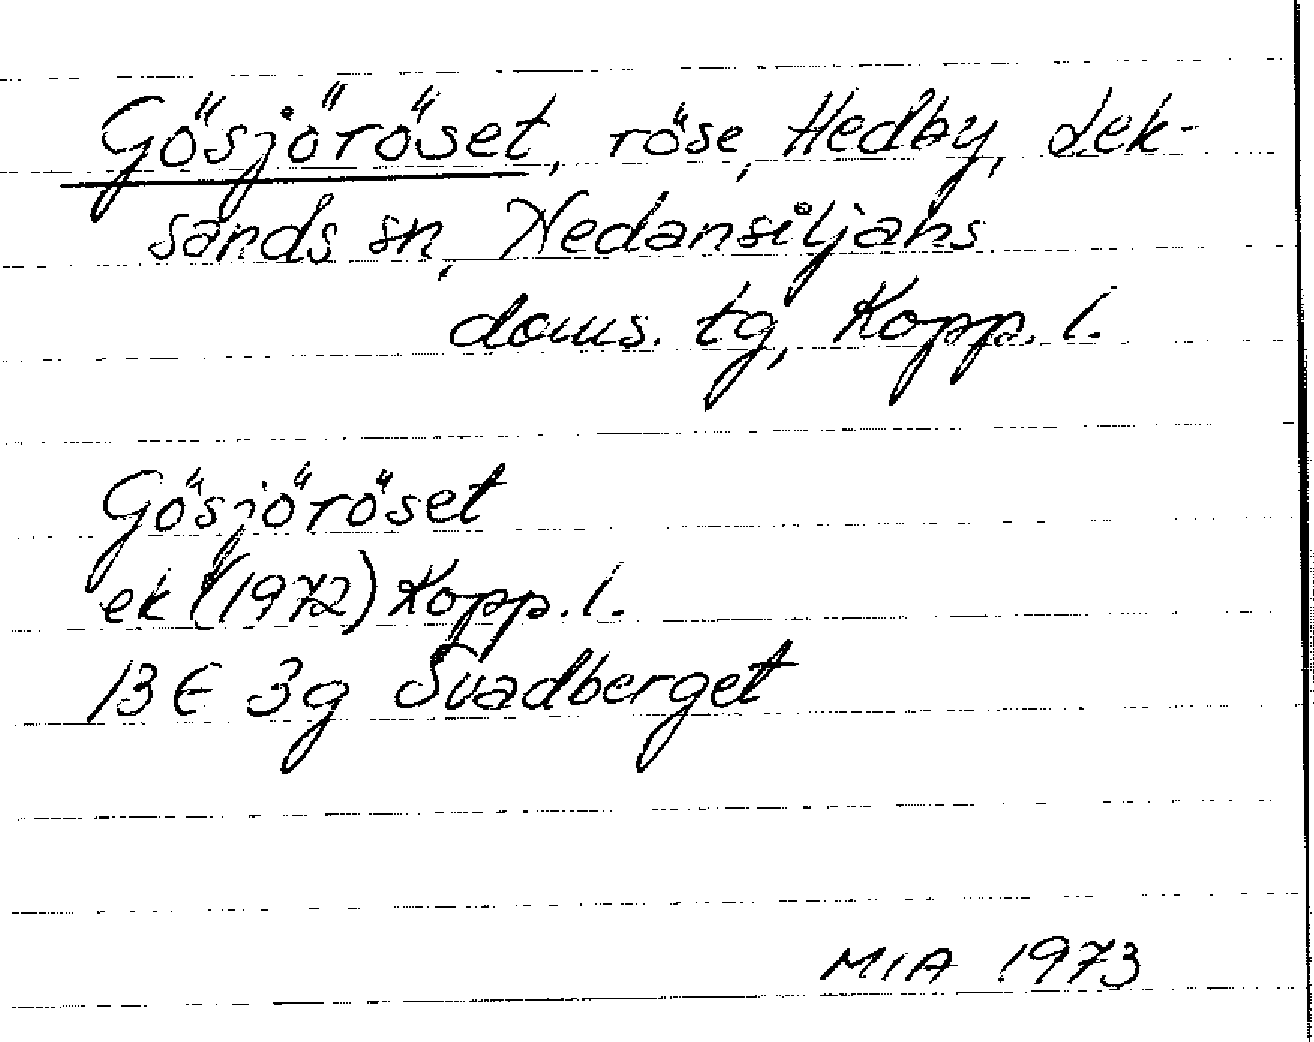 Gösjöröset, röse, Hedby, Lek-
sands sn, Nedansiljans
doms. tg, Kopp. l.
Gösjöröset
ek (1972) Kopp. l.
13E 3g Svadberget
MIA 1973